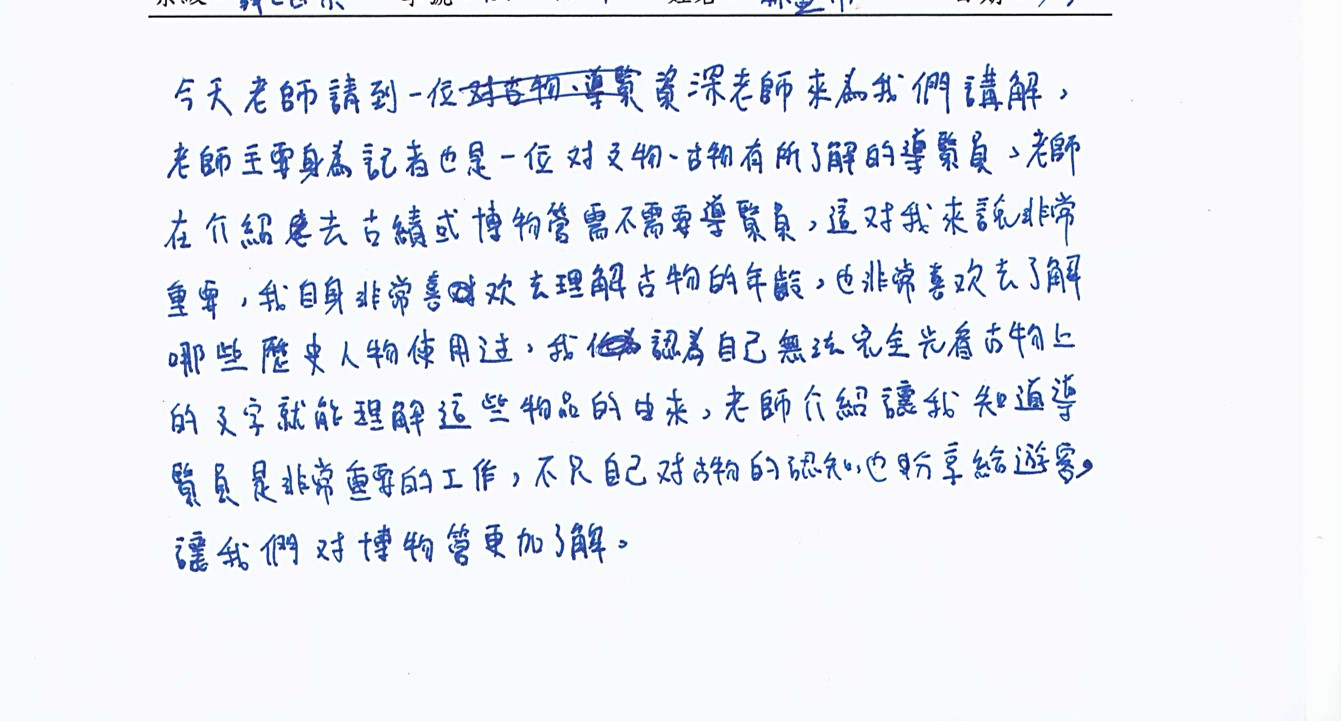 今天老師請到一位資深老師來為我們講解，
老師主要身為記者也是一位对文物、古物有所了解的導覽員，老師
在介紹去古績或博物管需不需要導覽員，這对我來說非常
重要，我自身非常喜欢去理解古物的年齡，也非常喜欢去了解
哪些歷史人物使用过，我認為自己無法完全光看古物上
的文字就能理解這些物品的由來，老師介紹讓我知道導
覽員是非常重要的工作，不只自己对古物的認知，也分享給遊客，
讓我們对博物管更加了解。